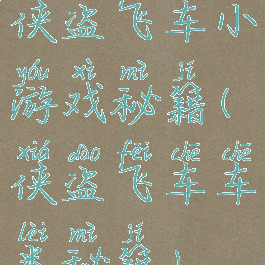 侠盗飞车小
yóu xì mì jí
游戏秘籍(
xiá dào fēi chē chē
侠盗飞车车
lèi mì jí
类秘籍)